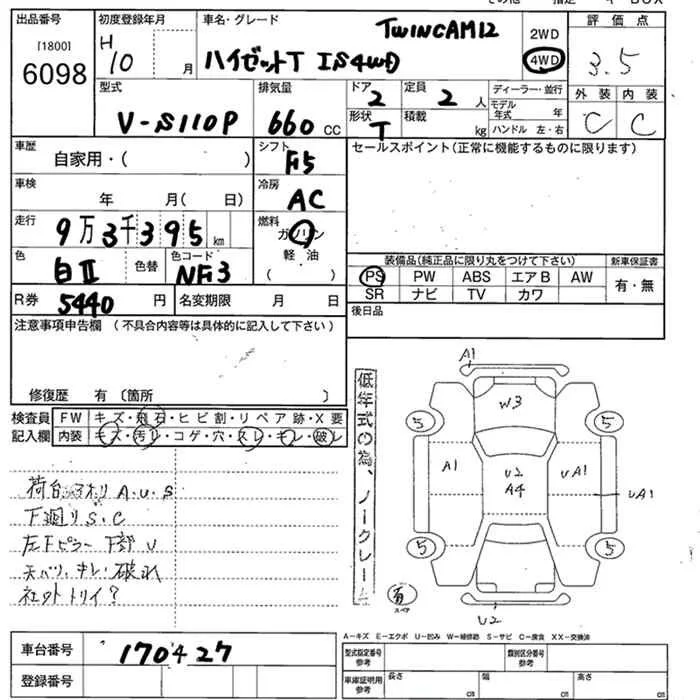 出品番号
[1800]
6098
初度登録年月
H
10
月
車名・グレード
TWINCAM12
ハイゼットT IS4WD
2WD
4WD
評価点
3.5
外装 内装
C C
型式
V-S110P
排気量
660 cc
ドア
2
定員
2 人
形状
T
積載
kg
ディーラー・並行
モデル年式 年
ハンドル 左・右
車歴
自家用・( )
シフト
F5
セールスポイント(正常に機能するものに限ります)
車検
年 月( 日)
冷房
AC
走行
9万3千395 km
燃料
ガソリン
軽油
( )
色
白II
色替
色コード
NF3
装備品(純正品に限り丸をつけて下さい)
新車保証書
PS PW ABS エアB AW
有・無
SR ナビ TV カワ
R券 5440 円
名変期限 月 日
後日品
注意事項申告欄 (不具合内容等は具体的に記入して下さい)
修復歴 有 〔箇所 〕
検査員
記入欄
FW キズ・飛石・ヒビ割・リペア跡・X要
内装 キズ・汚レ・コゲ・穴・スレ・キレ・破レ
荷台 アオリ A.U.S
下廻り S.C
左Fピラー下部 U
天バリ、キレ・破れ
社外トリイ?
低年式の為、ノークレーム
A1
W3
5
5
A1
U2
A4
UA1
UA1
5
5
有
スペア
U2
A-キズ E-エクボ U-凹み W-補修跡 S-サビ C-腐食 XX-交換済
車台番号
170427
登録番号
型式指定番号
参考
類別区分番号
参考
車庫証明用
参考
長さ
cm
幅
cm
高さ
cm